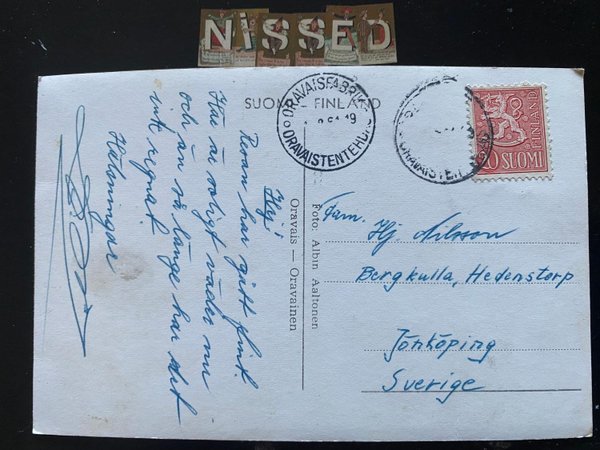 NISSED
SUOMI FINLAND
ORAVAISFABRIK
ORAVAISTENTEHDAS
ORAVAISTEN
SUOMI
FINLAND
Hej!
Resan har gått fint.
Här är soligt väder nu
och än så länge har det
ink regnat.
Hälsningar
Foto: Albin Aaltonen
Oravais — Oravainen
Fam.
Hj. Nilsson
Bergkulla, Hedenstorp
Jönköping
Sverige